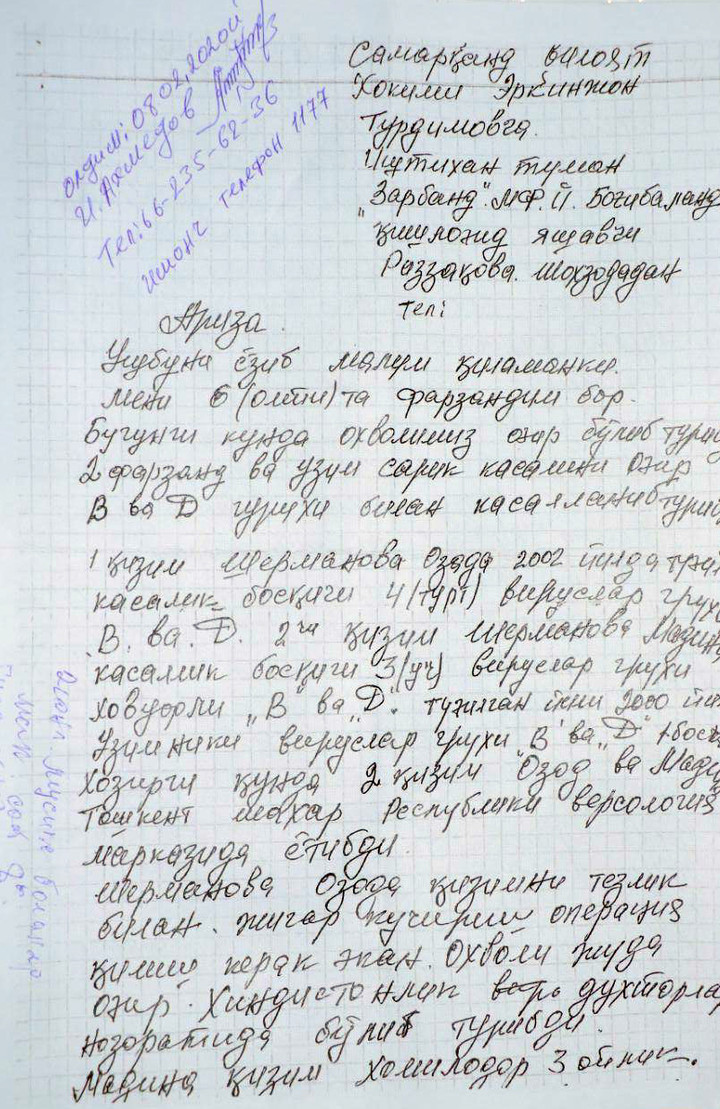 олдим: 08.02.2020й
И. Ахмедов
Тел: 66-235-62-36
ишонч телефон 1177
Самарқанд вилоят
Хокими Эркинжон
Турдимовга.
Иштихан туман
"Зарбанд". МФ.Й. Боғибаланд
қишлоғид яшавчи
Раззақова. Шохзодадан
тел:
Ариза.
Ушбуни ёзиб малум қиламанки.
мени 6 (олти) та фарзандим бор.
Бугунги кунда охволимиз оғир бўлиб
2 фарзанд ва узим сарик касалини оғир
В ва D гурухи билан
1 қизим Шерманова Озада 2002 йилда
касалик босқичи 4 (турт) вируслар
В. ва. D. 2чи қизим Шерманова
касалик босқичи 3 (уч) вируслар грухи
ховуфли "В" ва "D". туғилган йили 2000
Узимники вируслар грухи В ва "D"
Хозирги кунда 2 қизим Озод ва
Тошкент шахар Республики версология
марказида ётибди.
Шерманова Озада қизимни тезлик
билан. жигар кучириш операция
қилиш керак экан. Охволи жуда
оғир. Хиндистонлик духторлар
нозоратида бўлиб турибди.
Мадина қизим хомилодор 3 ойлик.